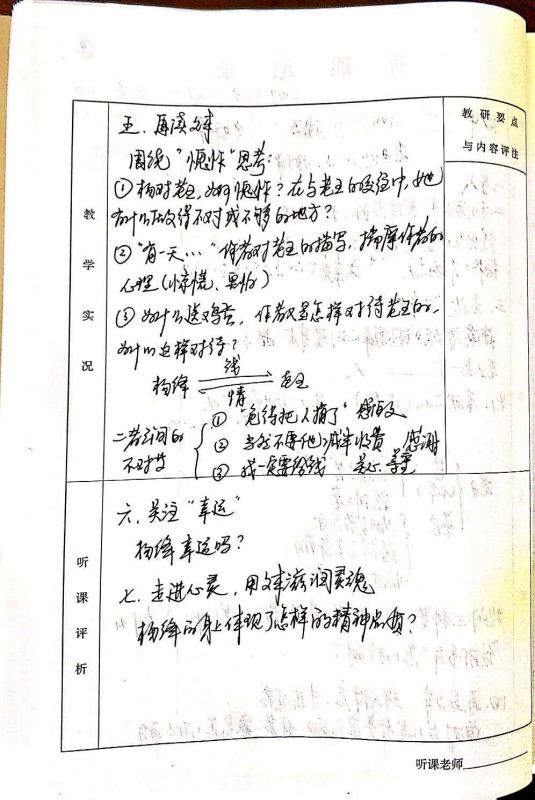 教研要点
与内容评注
教学实况
五、再读文本
围绕“愧怍”思考:
① 杨对老王,如何愧怍?在与老王的交往中,她
为什么觉得不对或不够的地方?
② “有一天…”作者对老王的描写,揣摩作者的
心理(惊慌、害怕)
③ 为什么送鸡蛋,作者又是怎样对待老王的,
为什么这样对待?
钱
杨绛 老王
情
二者之间的
不对等
① “免得把人捎了”
② 当然不要他减半收费 感谢
③ 我一定要给钱 关心、尊重
听课评析
六、关注“幸运”
杨绛幸运吗?
七、走进心灵,用文本滋润灵魂
杨绛的身上体现了怎样的精神品质?
听课老师